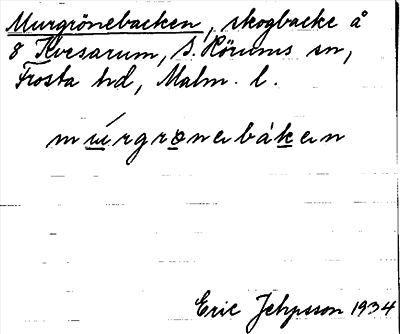 Murgrönebacken, skogbacke å
8 Kvesarum, S. Hörums sn,
Frosta hd, Malm. l.
mu̲rgrö̲nebàk̲en
Eric Jehpsson 1934